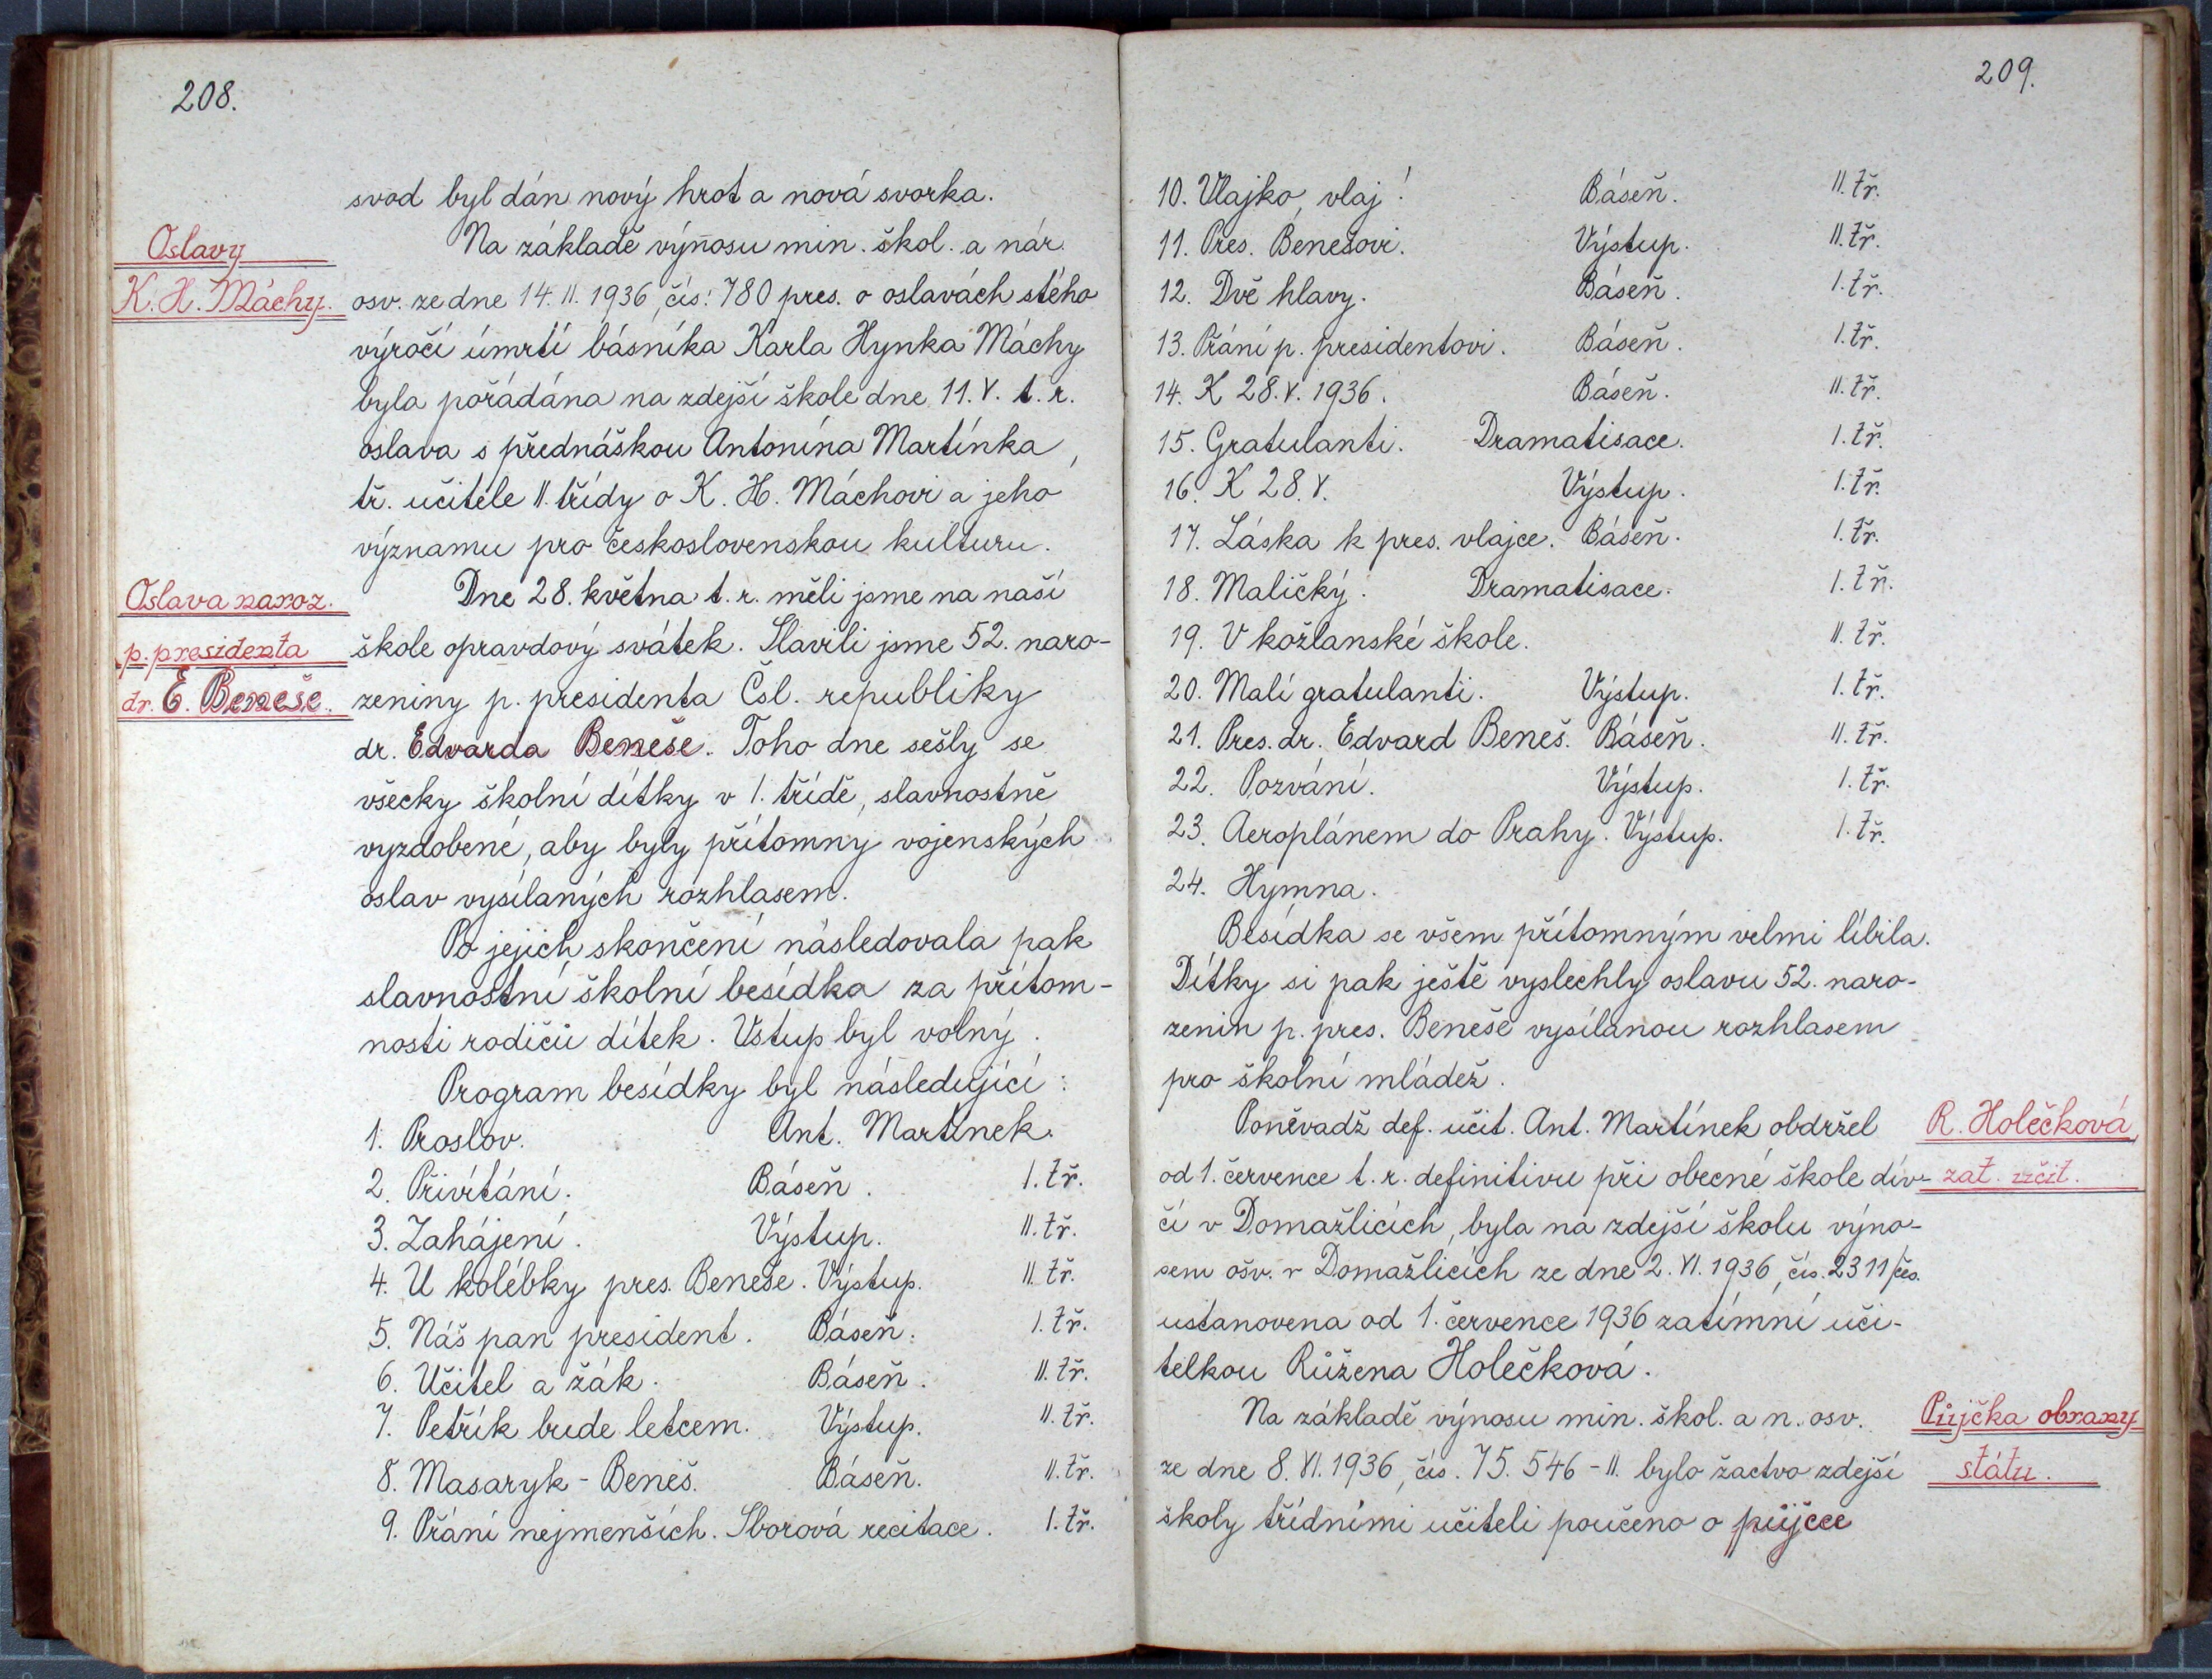 208.
svod byl dán nový hrot a nová svorka.
Oslavy
K. H. Máchy.
Na základě výnosu min. škol. a nár.
osv. ze dne 14. II. 1936, čís. 780 pres. o oslavách stého
výročí úmrtí básníka Karla Hynka Máchy
byla pořádána na zdejší škole dne 11. V. t. r.
oslava s přednáškou Antonína Martínka,
tř. učitele II. třídy o K. H. Máchovi a jeho
významu pro československou kulturu.
Oslava naroz.
p. presidenta
dr. E. Beneše.
Dne 28. května t. r. měli jsme na naší
škole opravdový svátek. Slavili jsme 52. naro-
zeniny p. presidenta Čsl. republiky
dr. Edvarda Beneše. Toho dne sešly se
všecky školní dítky v I. třídě, slavnostně
vyzdobené, aby byly přítomny vojenských
oslav vysílaných rozhlasem.
Po jejich skončení následovala pak
slavnostní školní besídka za přítom-
nosti rodičů dítek. Vstup byl volný.
Program besídky byl následující:
1. Proslov. Ant. Martínek.
2. Přivítání. Báseň. I. tř.
3. Zahájení. Výstup. II. tř.
4. U kolébky pres. Beneše. Výstup. II. tř.
5. Náš pan president. Báseň. I. tř.
6. Učitel a žák. Báseň. II. tř.
7. Petřík bude letcem. Výstup. II. tř.
8. Masaryk - Beneš. Báseň. II. tř.
9. Přání nejmenších. Sborová recitace. I. tř.
209.
10. Vlajko, vlaj! Báseň. II. tř.
11. Pres. Benešovi. Výstup. II. tř.
12. Dvě hlavy. Báseň. I. tř.
13. Přání p. presidentovi. Báseň. I. tř.
14. K 28. V. 1936. Báseň. II. tř.
15. Gratulanti. Dramatisace. I. tř.
16. K 28. V. Výstup. I. tř.
17. Láska k pres. vlajce. Báseň. I. tř.
18. Maličký. Dramatisace. I. tř.
19. V kožlanské škole. II. tř.
20. Malí gratulanti. Výstup. I. tř.
21. Pres. dr. Edvard Beneš. Báseň. II. tř.
22. Pozvání. Výstup. I. tř.
23. Aeroplánem do Prahy. Výstup. I. tř.
24. Hymna.
Besídka se všem přítomným velmi líbila.
Dítky si pak ještě vyslechly oslavu 52. naro-
zenin p. pres. Beneše vysílanou rozhlasem
pro školní mládež.
Poněvadž def. učit. Ant. Martínek obdržel
od 1. července t. r. definitivu při obecné škole dív-
čí v Domažlicích, byla na zdejší školu výno-
sem ošv. v Domažlicích ze dne 2. VI. 1936, čís. 2311/čes.
ustanovena od 1. července 1936 zatímní uči-
telkou Růžena Holečková.
R. Holečková,
zat. učit.
Na základě výnosu min. škol. a n. osv.
ze dne 8. VI. 1936, čís. 75.546 - II. bylo žactvo zdejší
školy třídními učiteli poučeno o půjčce
Půjčka obrany
státu.